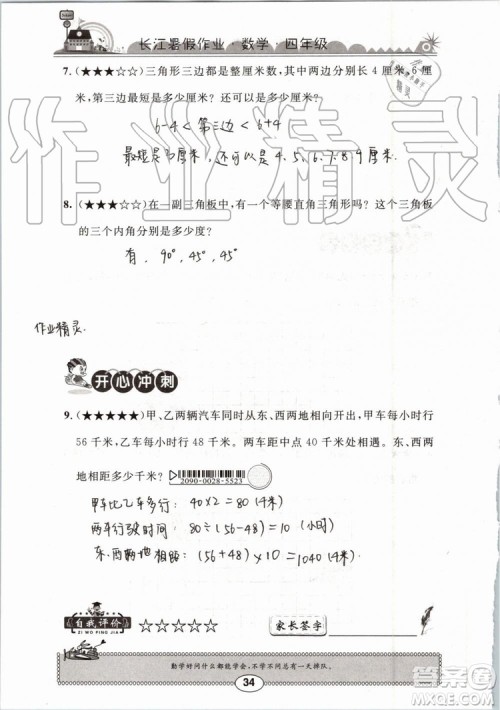 长江暑假作业·数学 四年级
7.(★★★☆☆)三角形三边都是整厘米数,其中两边分别长 4 厘米、6 厘
米,第三边最短是多少厘米? 还可以是多少厘米?
6-4 < 第三边 < 6+4
最短是3厘米,还可以是4、5、6、7、8、9厘米.
8.(★★★☆☆)在一副三角板中,有一个等腰直角三角形吗? 这个三角板
的三个内角分别是多少度?
有, 90°, 45°, 45°
作业精灵
作业精灵.
开心冲刺
9.(★★★★★)甲、乙两辆汽车同时从东、西两地相向开出,甲车每小时行
56 千米,乙车每小时行 48 千米。两车在距中点 40 千米处相遇。东、西两
地相距多少千米?
2090-0028-5523
甲车比乙车多行: 40×2=80(千米)
两车行驶时间: 80÷(56-48)=10(小时)
东、西两地相距: (56+48)×10=1040(千米)
自我评价
ZI WO PING JIA
☆☆☆☆☆
家长签字
勤学好问什么都能学会,不学不问总有一天掉队。
34